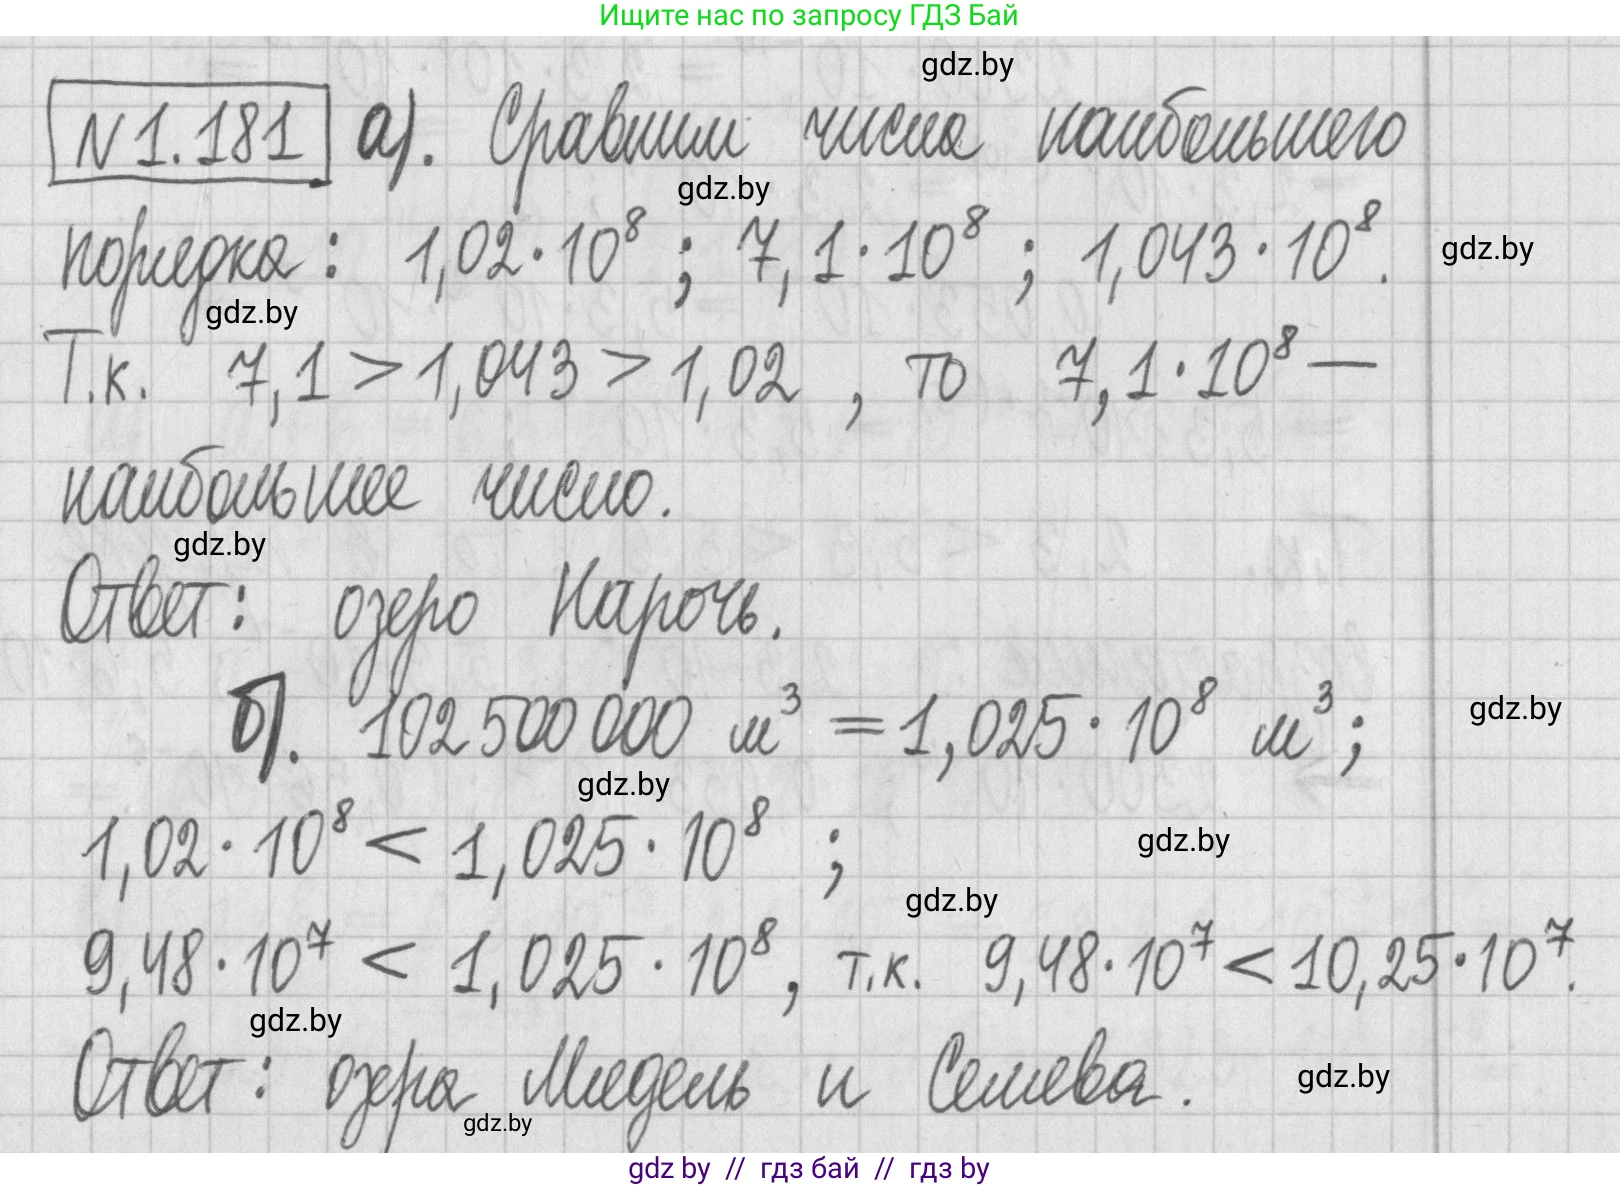 Ищите нас по запросу ГДЗ Бай
gdz.by
N 1.181 а). Сравним числа наибольшего
gdz.by
порядка: 1,02·10⁸; 7,1·10⁸; 1,043·10⁸.
gdz.by
gdz.by
Т.к. 7,1 > 1,043 > 1,02, то 7,1·10⁸ —
наибольшее число.
gdz.by
Ответ: озеро Нарочь.
б). 102 500 000 м³ = 1,025·10⁸ м³;
gdz.by
gdz.by
1,02·10⁸ < 1,025·10⁸;
gdz.by
gdz.by
9,48·10⁷ < 1,025·10⁸, т.к. 9,48·10⁷ < 10,25·10⁷.
gdz.by
Ответ: озёра Мядель и Селева.
gdz.by
gdz.by
gdz by // гдз бай // гдз by